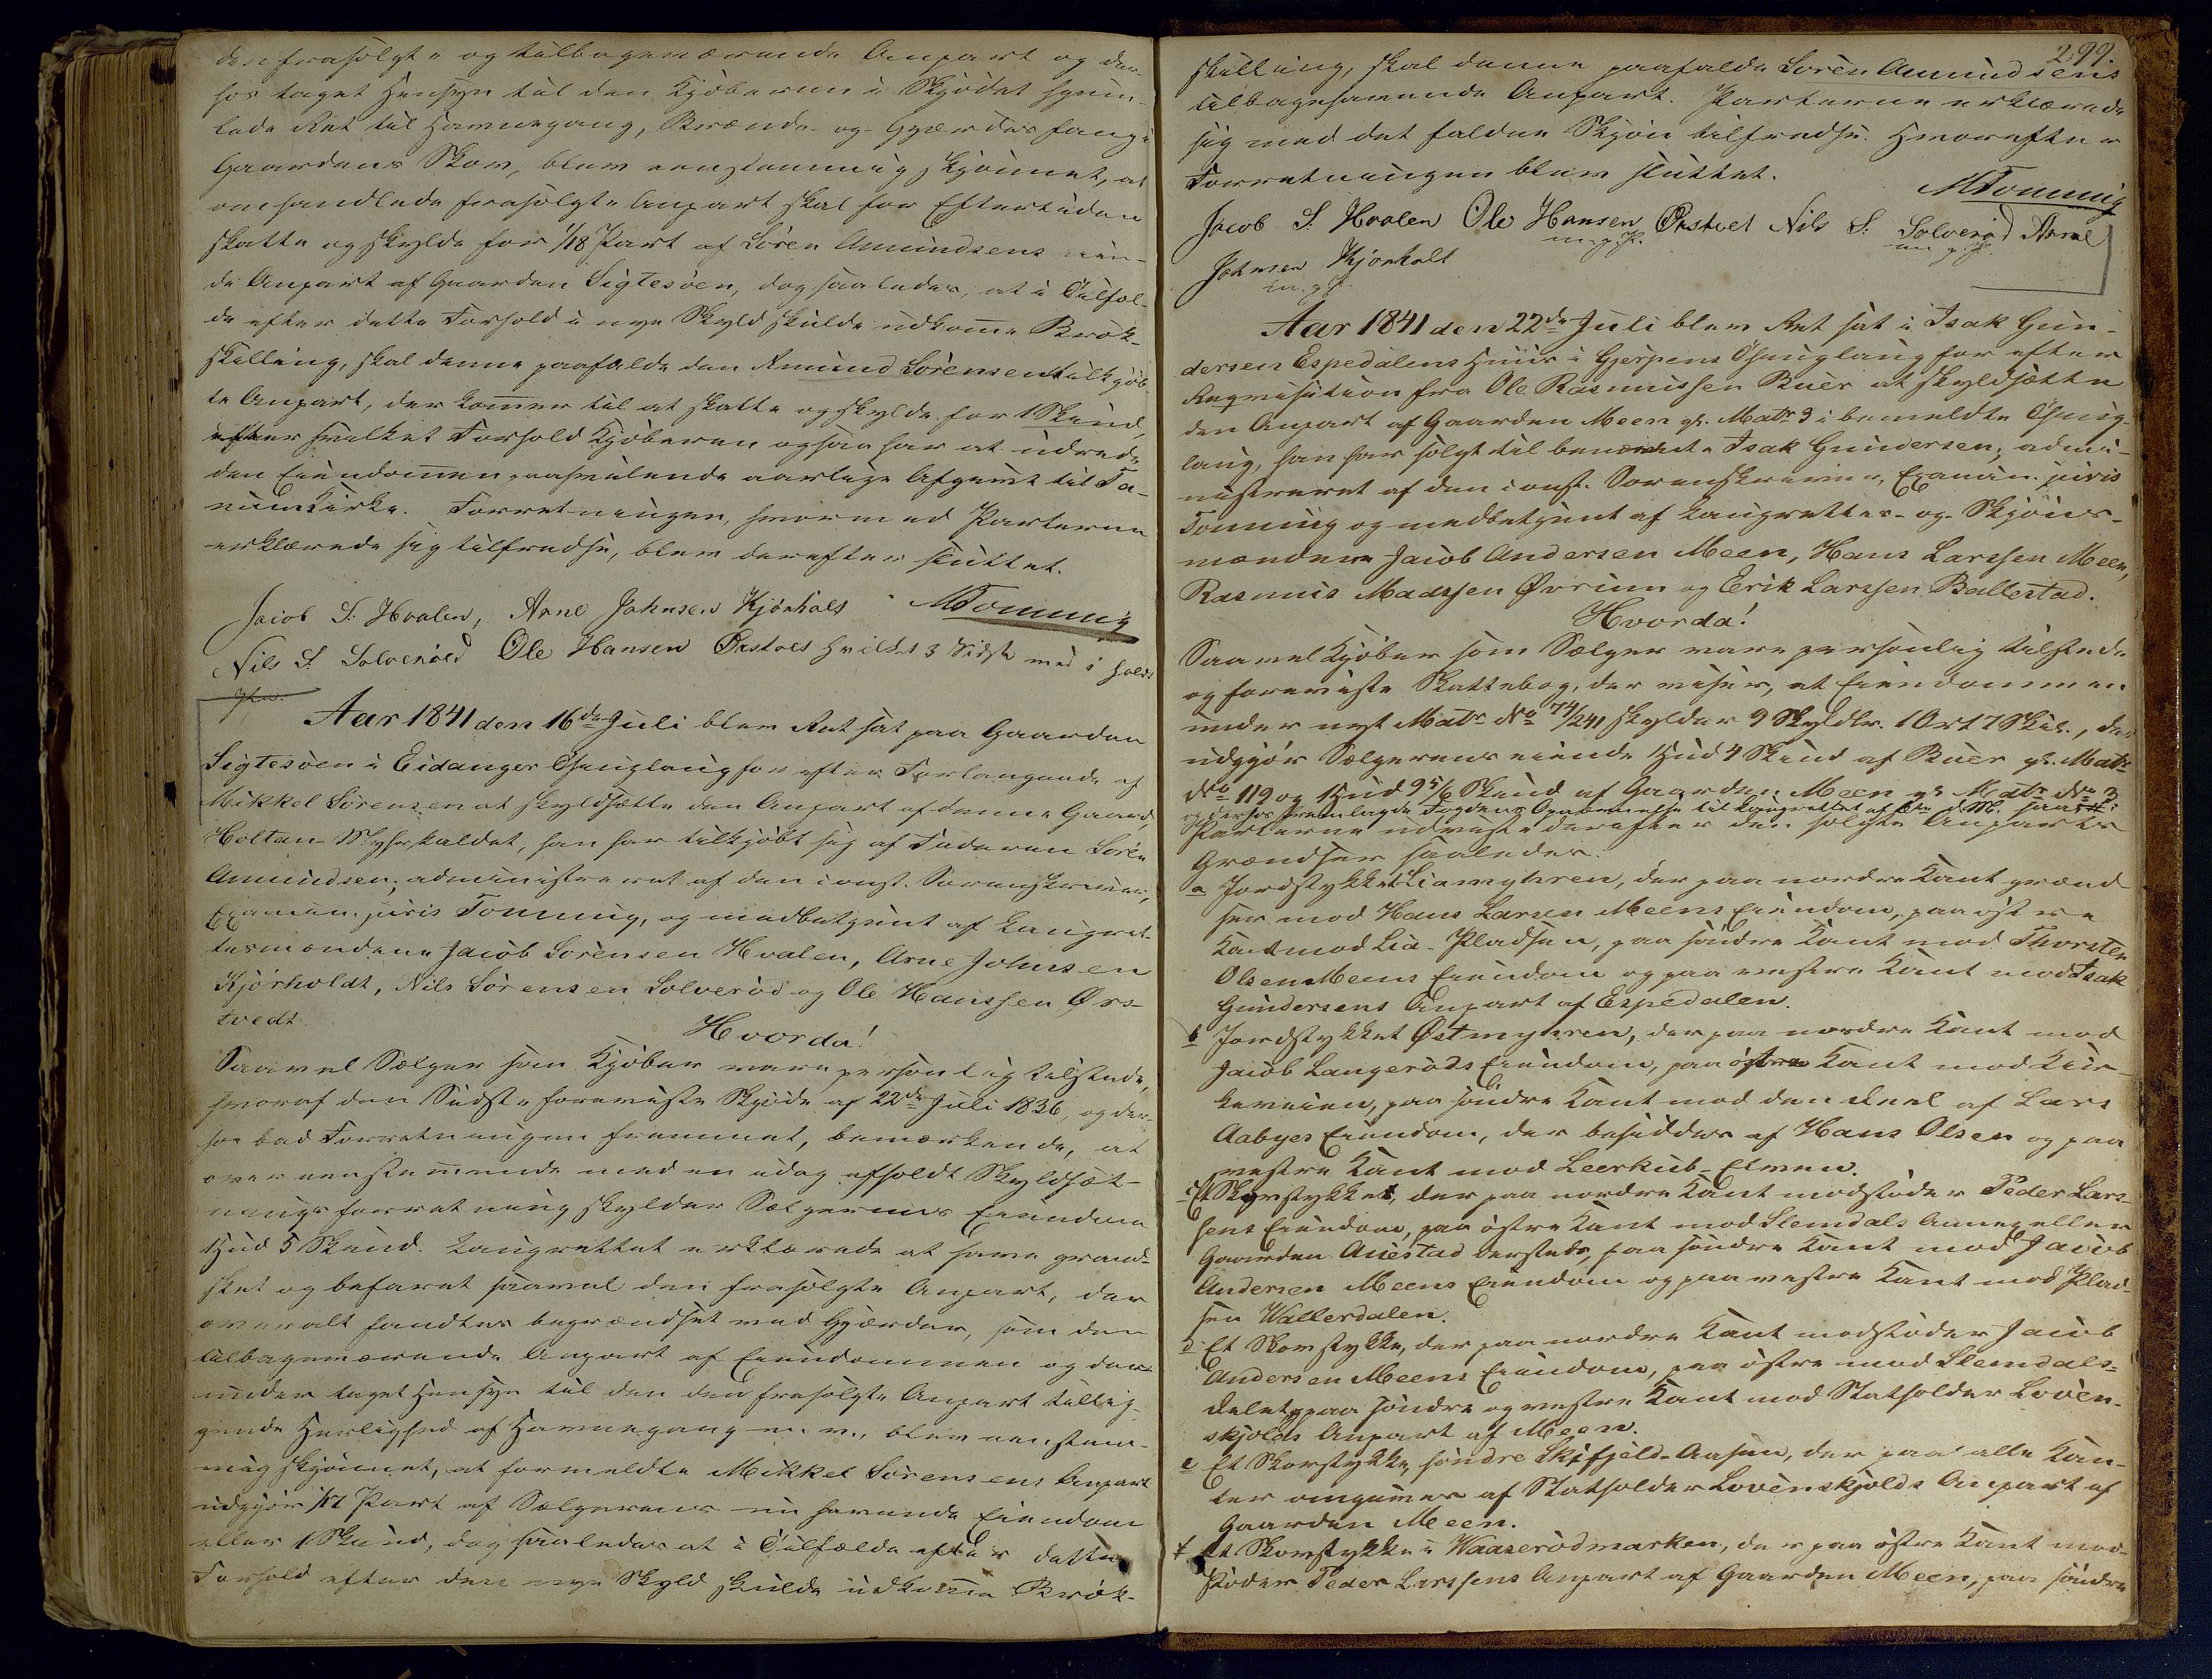 den frasolgte og tilbageværende Anpart og der-
hos taget Hensyn til den Kjøberen i Skjødet hjem-
lede Ret til Havnegang, Brænde- og Gjærdesfang i
Gaardens Skov, blev eenstemmig skjønnet, at
omhandlede frasolgte Anpart skal for Eftertiden
skatte og skylde for 1/18 Part af Sören Amundsens eien-
de Anpart af Gaarden Sigtesöen, dog saaledes, at i Tilfæl-
de efter dette Forhold i nye Skyld skulde udkome Brök-
skilling, skal denne paafalde den Amund Sörensen tilkjöb-
te Anpart, der komer til at skatte og skylde for 1 Skind,
efter hvilket Forhold Kjøberen ogsaa har at udrede
den Eiendomen paahvilende aarlige Afgivt til Ta-
num Kirke. Forretningen, hvormed Parterne
erklærede sig tilfredse, blev derefter sluttet.
MTonning
Jacob S. Hvalen, Arne Johnsen Kjørholt
Nils S. Solveröd Ole Hansen Örstvet hvilket 3 Sidste med i holdt
Pen.
Aar 1841 den 16de Juli blev Ret sat paa Gaarden
Sigtesöen i Eidanger Thinglaug for efter Forlangende af
Mikkel Sörensen at skyldsætte den Anpart af denne Gaard,
Holtan kaldet, han har tilkjøbt sig af Faderen Sören
Amundsen; administreret af den const. Sorenskriver,
Examin. juris Tonning, og medbetjent af Laugret-
tesmændene Jacob Sörensen Hvalen, Arne Johnsen
Kjörholdt, Nils Sörensen Solveröd og Ole Hanssen Örs-
tvedt.
Hvorda!
Saavel Sælger som Kjøber vare personlig tilstede,
hvoraf den Sidste foreviste Skjøde af 22de Juli 1836, og der-
hos bad Forretningen fremmet, bemærkende, at
overeenstemende med en idag afholdt Skyldsæt-
ningsforretning skylder Sælgerens Eiendom
1 Hud 5 Skind. Laugrettet erklærede at have grand-
sket og befaret saavel den frasolgte Anpart, der
overalt fandtes begrændset med Gjærder, som den
tilbageværende Anpart af Eiendommen og der-
under taget Hensyn til den den frasolgte Anpart tillig-
gende Herlighed af Havnegang m. v., blev eenstem-
mig skjønnet, at formeldte Mikkel Sörensens Anpart
udgjör 1/17 Part af Sælgerens nu havende Eiendom
eller 1 Skind, dog saaledes at i Tilfælde efter dette
Forhold efter den nye Skyld skulde udkomme Brök-
299.
skilling, skal denne paafalde Sören Amundsens
tilbagehavende Anpart. Parterne erklærede
sig med det faldne Skjön tilfredse. Hvorefter
Forretningen blev sluttet.
MTonning
Jacob S. Hvalen Ole Hansen Örstvet Nils S. Solveröd Arne
m. p. P. m. p. P.
Johnsen Kjörholt
m. p. P.
Aar 1841 den 22de Juli blev Ret sat i Isak Gun-
dersen Espedalens Huus i Gjerpens Thinglaug for efter
Reqvisition fra Ole Rasmussen Buer at skyldsætte
den Anpart af Gaarden Meen gl. Matr 3 i bemeldte Thing-
laug, han har solgt til benævnte Isak Gundersen; admi-
nistreret af den const. Sorenskriver, Examin. juris
Tonning og medbetjent af Laugrettes- og Skjöns-
mændene Jacob Andersen Meen, Hans Larssen Meen,
Rasmus Madssen Övrum og Erik Larssen Ballestad.
Hvorda!
Saavel Kjøber som Sælger vare personlig tilstede
og foreviste Skattebog, der viser, at Eiendommen
under nyt Matr No 74/241 skylder 9 Skyldlr. 1 Ort 7 Skil., der
udgjör Sælgerens eiende 1 Hud 4 Skind af Buer gl. Matr
No 119 og 1 Hud 9 5/6 Skind af Gaarden Meen gl Matr No 3,
og derhos fremlagde Fogdens Opnævnelse til Laugrettet af
Parterne udviste derefter den solgte Anparts
Grændser saaledes:
a Jordstykket Liamyhren, der paa nordre Kant grænd-
ser mod Hans Larsen Meens Eiendom, paa östre
Kant mod Lia-Pladsen, paa söndre Kant mod Thorsten
Olsen Meens Eiendom og paa vestre Kant mod Isak
Gundersens Anpart af Espedalen.
b Jordstykket Östmyhren, der paa nordre Kant mod
Jacob Langeröds Eiendom, paa östre Kant mod Kir-
keveien, paa söndre Kant mod den Deel af Lars
Aabyes Eiendom, der besiddes af Hans Olsen og paa
vestre Kant mod Leerkub-Elven.
c Et Skovstykke, der paa nordre Kant modstöder Peder Lars-
sens Eiendom, paa östre Kant mod Slemdals Annex eller
Gaarden Auestad dersteds, paa söndre Kant mod Jacob
Andersen Meens Eiendom og paa vestre Kant mod Plad-
sen Wallerdalen.
d Et Skovstykke, der paa nordre Kant modstöder Jacob
Andersen Meens Eiendom, paa östre mod Slemdals-
Delet, paa söndre og vestre Kant mod Statholder Löven-
skjolds Anpart af Meen.
e Et Skovstykke, söndre Skifjeld-Aasen, der paa alle Kan-
ter omgives af Statholder Lövenskjolds Anpart af
Gaarden Meen.
f Et Skovstykke i Waaserödmarken, der paa östre Kant mod-
stöder Peder Larssens Anpart af Gaarden Meen, paa söndre